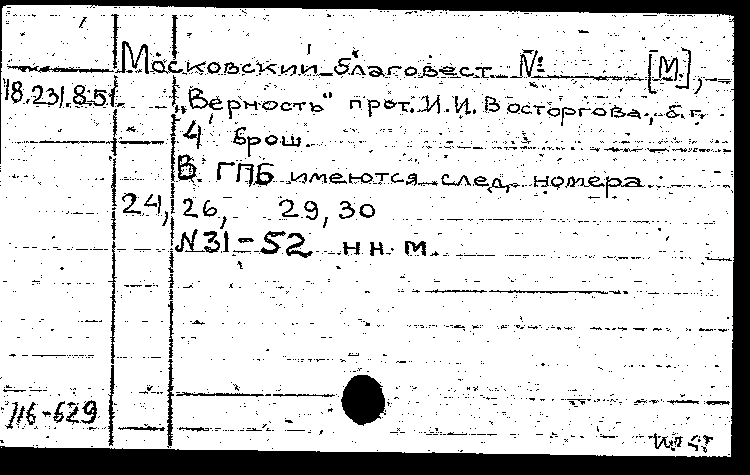 Московский благовест № [М.],
18.231.8.51 „Верность" прот. И.И. Восторгова, б.г.
4 брош.
В ГПБ имеются след. номера
24, 26, 29, 30
N 31-52 н н. м.
116-629